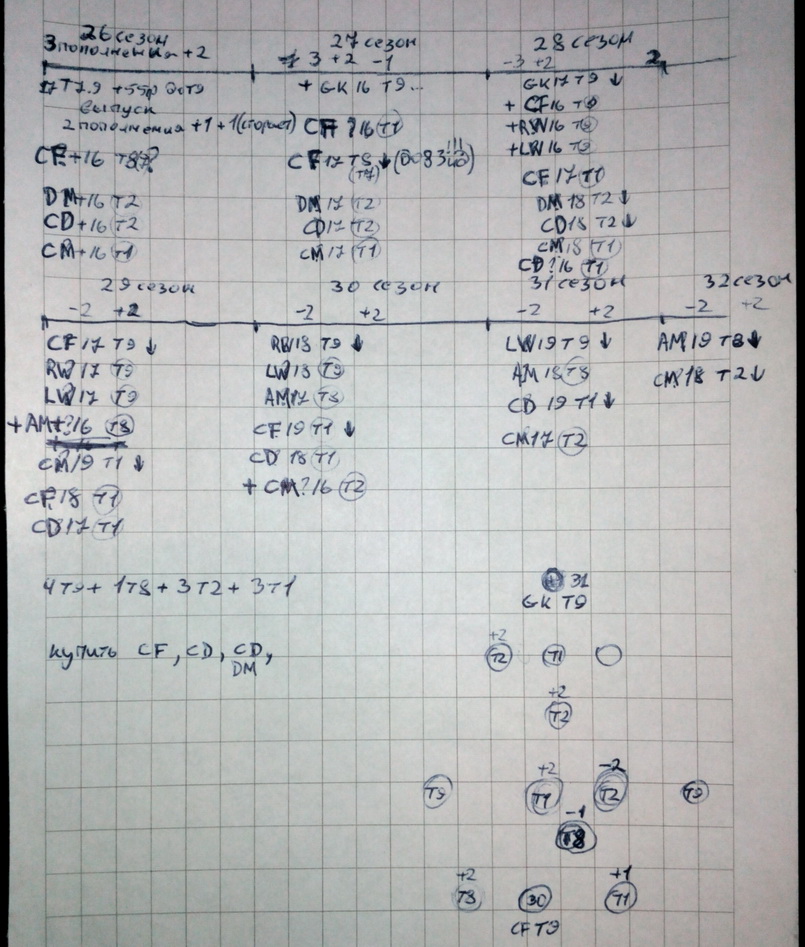 26 сезон
3 пополнения +2
27 сезон
3 +2 -1
28 сезон
-3 +2
T7.9 +55р
выпуск
2 пополнения +1+1 (сгорает)
+16
DM+16 T2
CD+16 T2
CM+16 T1
+ GK 16 T9..
CF ?16 T1
CF 17 T8 ↓ (
(T7)
DM 17 T2
CD17 T2
CM 17 T1
GK 17 T9 ↓
+ CF16 T9
+RW16 T9
+LW16 T9
CF 17 T1
DM 18 T2 ↓
CD18 T2 ↓
CM 18 T1
CD?16 T1
29 сезон
-2 +2
30 сезон
-2 +2
31 сезон
-2 +2
32 сезон
-2 +2
CF 17 T9 ↓
RW 17 T9
LW17 T9
+ AM ?16 T8
CM 19 T1 ↓
CF 18 T1
CD 17 T1
RW18 T9 ↓
LW18 T9
AM17 T8
CF 19 T1 ↓
CD 18 T1
+ CM?16 T2
LW19 T9 ↓
AM 18 T8
CD 19 T1 ↓
CM17 T2
AM 19 T8 ↓
CM 18 T2 ↓
4T9 + 1T8 + 3T2 + 3T1
купить CF, CD, CD,
DM
31
GK T9
+2
T2 T1
+2
T2
+2 -2
T9 T1 T2 T9
-1
T8
+2 +1
30 T1
CF T9